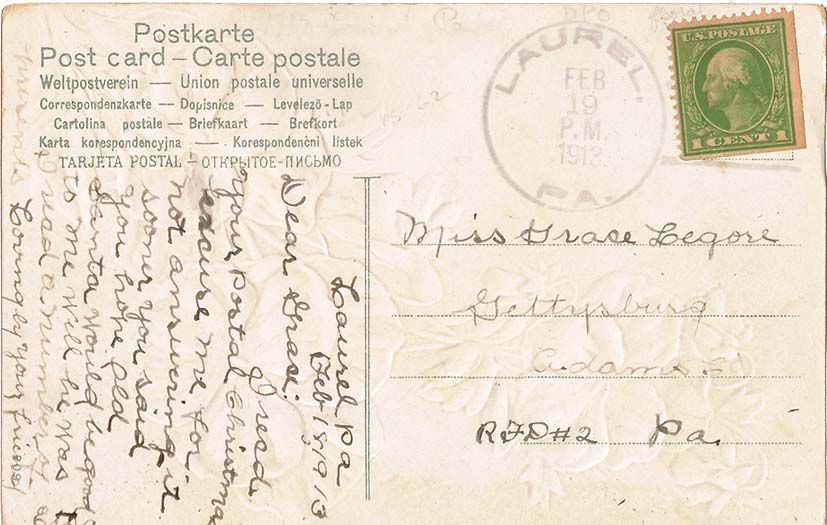 Postkarte
Post card – Carte postale
Weltpostverein — Union postale universelle
Correspondenzkarte — Dopisnice — Levelező-Lap
Cartolina postale — Briefkaart — Brefkort
Karta korespondencyjna — Korespondenčni listek
TARJETA POSTAL – ОТКРЫТОЕ-ПИСЬМО
LAUREL,
FEB
19
P.M.
1913
PA.
U.S. POSTAGE
1 CENT 1
Miss Grace Legore
Gettysburg
Adams
RFD#2 Pa.
Laurel Pa
Feb 1913
Dear Grace.
I recd.
your postal Christmas
excuse me for
not answering it
sooner you said
you hope old
Santa would be good
to me well he was
I recd a number of
presents
Lovingly your friend